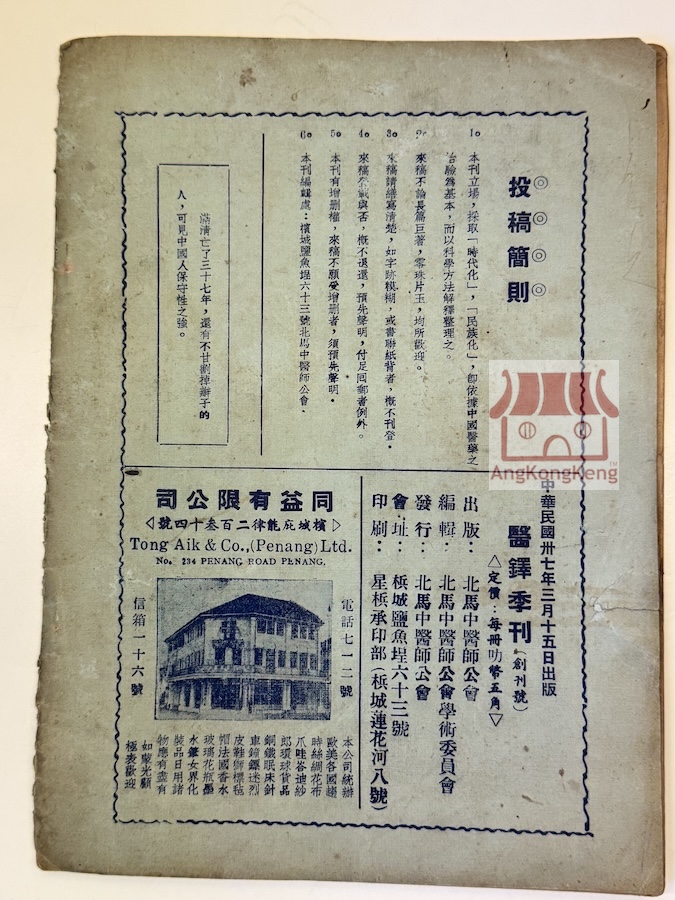 投稿簡則
1。本刊立場，採取「時代化」，「民族化」，即依據中國醫藥之
治驗為基本，而以科學方法解釋整理之。
2。來稿不論長篇巨著，零珠片玉，均所歡迎。
3。來稿請繕寫清楚，如字跡模糊，或書聯紙背者，概不刊登。
4。來稿登載與否，概不退還，預先聲明，付足回郵者例外。
5。本刊有增删權，來稿不願受增删者，須預先聲明。
6。本刊編輯處：檳城鹽魚埕六十三號北馬中醫師公會。
滿清亡了三十七年，還有不甘割掉辮子的
人，可見中國人保守性之強。
中華民國卅七年三月十五日出版
醫鐸季刊（創刊號）
△定價：每冊叻幣五角▽
出版：北馬中醫師公會
編輯：北馬中醫師公會學術委員會
發行：北馬中醫師公會
會址：梹城鹽魚埕六十三號
印刷：星梹承印部（梹城蓮花河八號）
同益有限公司
◁檳城庇能律二百叁十四號▷
Tong Aik & Co.,(Penang) Ltd.
No. 234 PENANG ROAD PENANG.
電話七一二號
信箱一十六號
本公司統辦
歐美各國趨
時絲綢花布
爪哇峇迪紗
郎環球貨品
銅鐵眠床針
車鐘鏢迷烈
皮鞋獅標毡
帽法國香水
玻璃花瓶墨
水筆女界化
裝品日用諸
物應有盡有
如蒙光顧
極表歡迎
AngKongKeng
TM